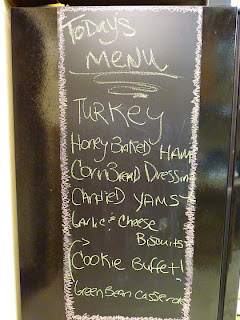 Today's
MENU
TURKEY
Honey Baked HAM
Cornbread Dressing
Candied YAMS
Garlic & Cheese
Biscuits
Cookie Buffet!
Green Bean Casserole